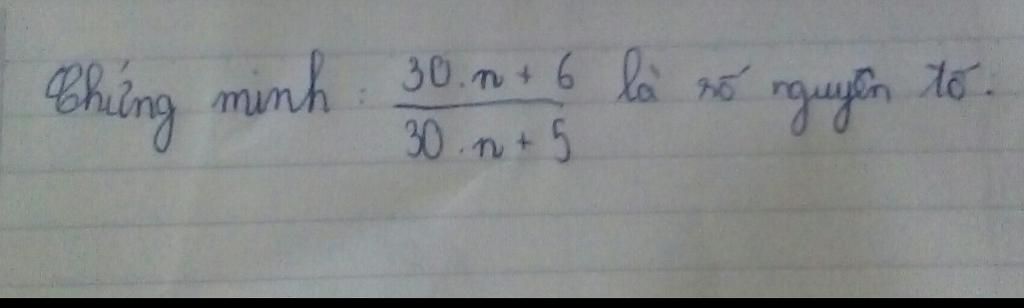 Chứng minh : \frac{30.n + 6}{30.n + 5} là số nguyên tố.